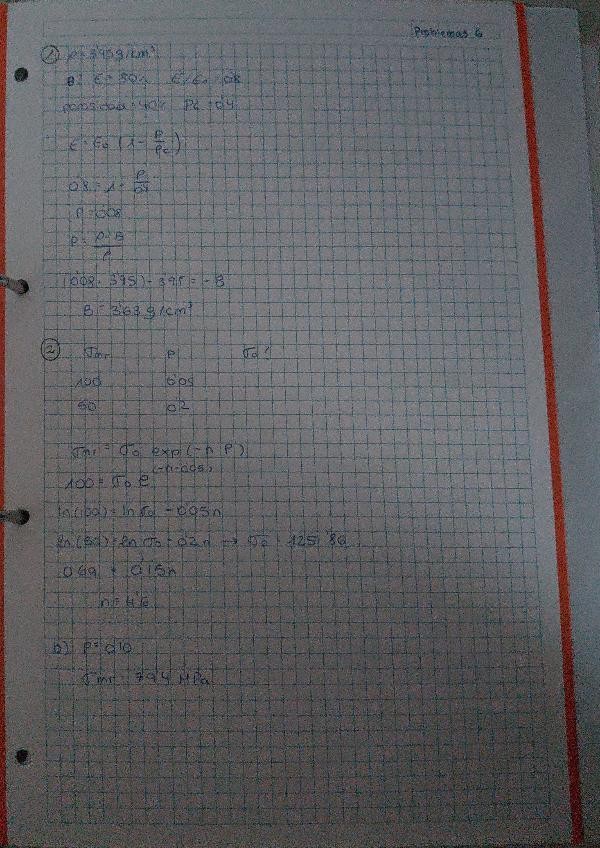 Problemas 6
① ρ = 3'95 g/cm³
B: E = 80% E/E₀ = 0'8
porosidad = 40% Pc = 0'4
E = E₀ (1 - P/Pc)
0'8 = 1 - P/0'4
P = 0'08
P = (ρ - B)/ρ
(0'08 · 3'95) - 3'95 = -B
B = 3'63 g/cm³
② σmr P σ₀?
100 0'05
50 0'2
σmr = σ₀ exp(-n P)
100 = σ₀ e^(-n·0'05)
ln(100) = ln σ₀ - 0'05n
ln(50) = ln σ₀ - 0'2n → σ₀ = 125'86
0'69 = 0'15n
n = 4'6
b) P = 0'10
σmr = 79'4 MPa